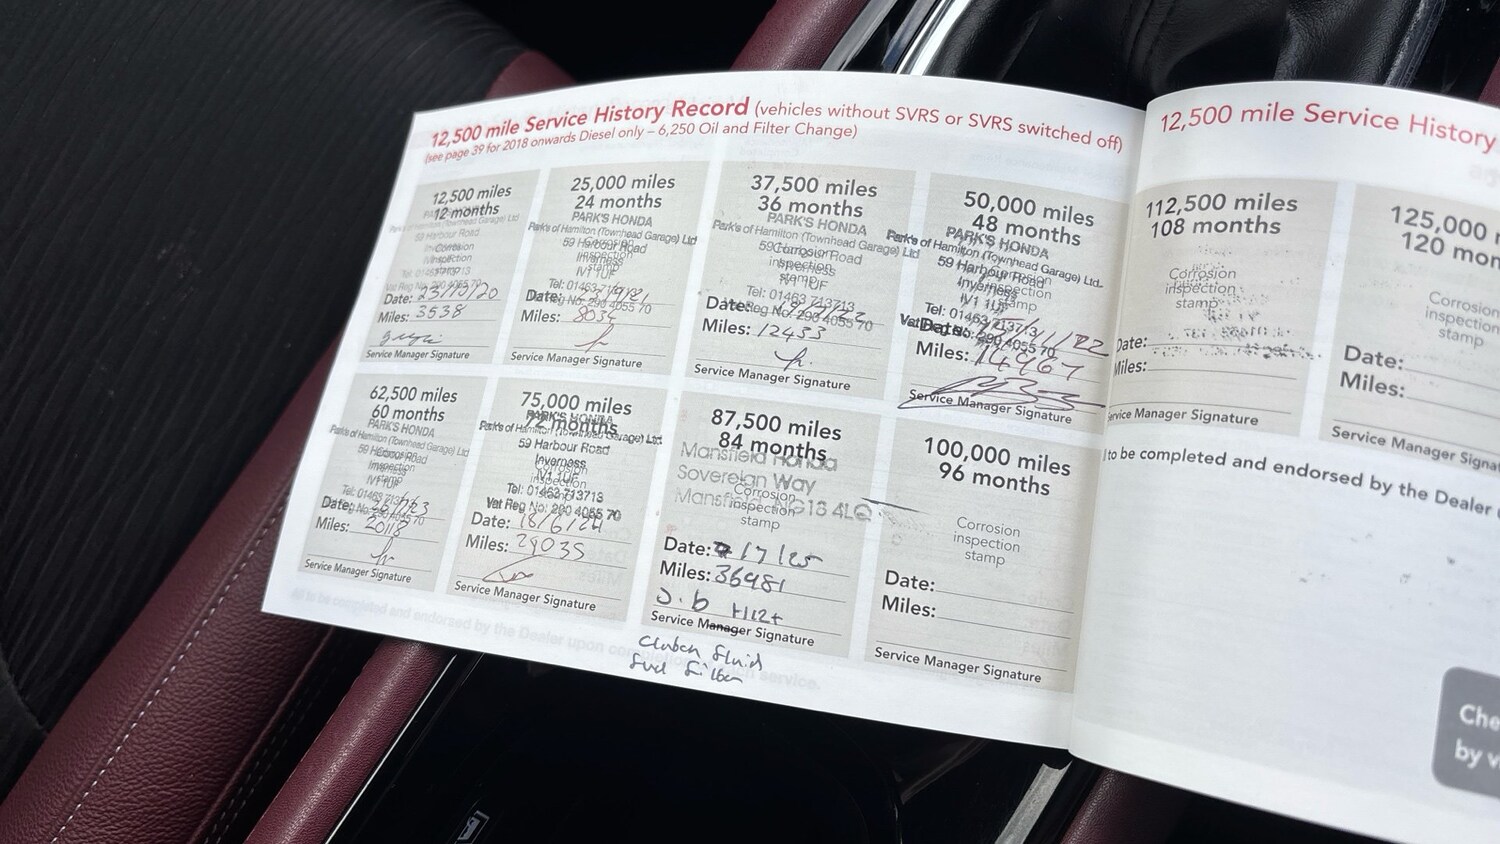 12,500 mile Service History Record (vehicles without SVRS or SVRS switched off)
(see page 39 for 2018 onwards Diesel only – 6,250 Oil and Filter Change)
12,500 miles
12 months
Park's of Hamilton (Townhead Garage) Ltd
59 Harbour Road
Inverness
Corrosion
inspection
stamp
Tel: 01463 713713
Vat Reg No: 290 4055 70
Date: 23/10/20
Miles: 3538
Service Manager Signature
25,000 miles
24 months
PARK'S HONDA
Park's of Hamilton (Townhead Garage) Ltd
59 Harbour Road
Inverness
Corrosion
inspection
stamp
IV1 1UF
Tel: 01463 713713
Vat Reg No: 290 4055 70
Date:
Miles: 8034
Service Manager Signature
37,500 miles
36 months
PARK'S HONDA
Park's of Hamilton (Townhead Garage) Ltd
59 Harbour Road
Inverness
Corrosion
inspection
stamp
IV1 1UF
Tel: 01463 713713
Vat Reg No: 290 4055 70
Date:
Miles: 12433
Service Manager Signature
50,000 miles
48 months
PARK'S HONDA
Park's of Hamilton (Townhead Garage) Ltd.
59 Harbour Road
Inverness
Corrosion
inspection
stamp
IV1 1UF
Tel: 01463 713713
Vat Reg No: 290 4055 70
Date: /11/22
Miles: 14467
Service Manager Signature
62,500 miles
60 months
PARK'S HONDA
Park's of Hamilton (Townhead Garage) Ltd
59 Harbour Road
Inverness
Corrosion
inspection
stamp
IV1 1UF
Tel: 01463 713713
Vat Reg No: 290 4055 70
Date:
Miles: 20118
Service Manager Signature
75,000 miles
72 months
PARK'S HONDA
Park's of Hamilton (Townhead Garage) Ltd
59 Harbour Road
Inverness
IV1 1UF
Corrosion
inspection
stamp
Tel: 01463 713713
Vat Reg No: 290 4055 70
Date: 18/6/24
Miles: 29035
Service Manager Signature
87,500 miles
84 months
Mansfield Honda
Sovereign Way
Mansfield, NG18 4LQ
Corrosion
inspection
stamp
Date: 7/7/25
Miles: 36981
J.b
Service Manager Signature
Clutch Fluid
Fuel Filter
100,000 miles
96 months
Corrosion
inspection
stamp
Date:
Miles:
Service Manager Signature
12,500 mile Service History
112,500 miles
108 months
Corrosion
inspection
stamp
Date:
Miles:
Service Manager Signature
125,000
120
Corrosion
inspection
stamp
Date:
Miles:
Service Manager
to be completed and endorsed by the Dealer
Che
by v